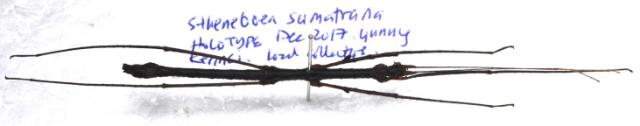 Stheneboea Sumatrana
HoloTYPE Dec 2017 Gunung
Kerinci. Local collector.